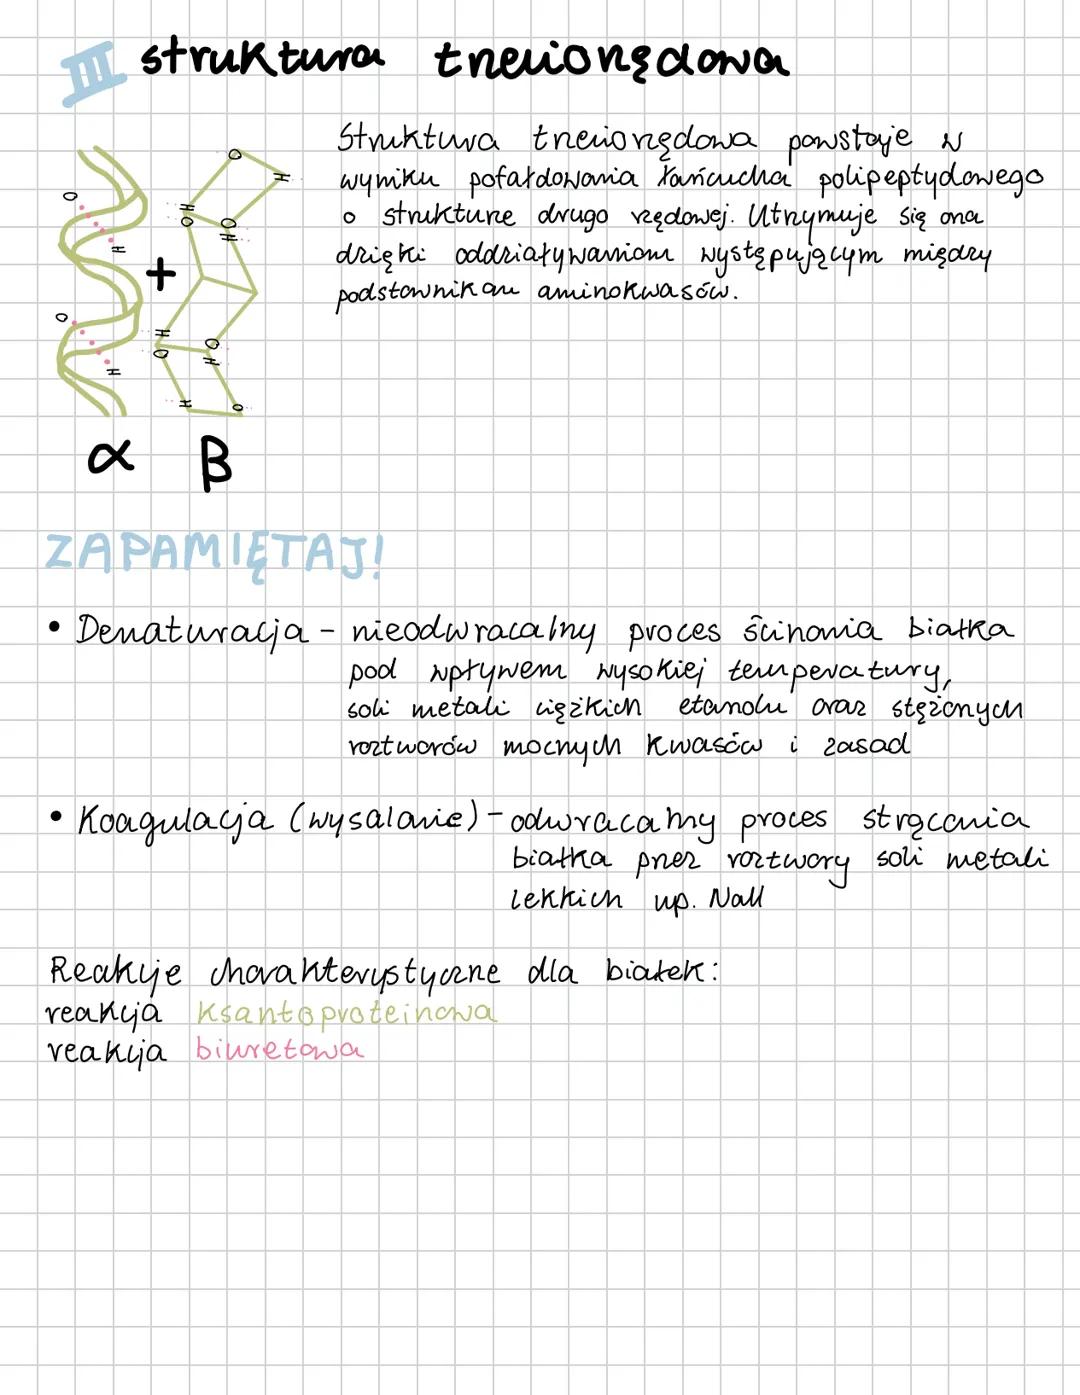 III struktura trzeciorzędowa
Struktura trzeciorzędowa powstaje w
wyniku pofałdowania łańcucha polipeptydowego
o strukturze drugo rzędowej. Utrzymuje się ona
dzięki oddziaływaniom występującym między
podstawnikami aminokwasów.
O
H
O
H
+
O
H
H
O
O
H
H
O
O
H
H
O
α β
ZAPAMIĘTAJ!
• Denaturacja - nieodwracalny proces ścinania białka
pod wpływem wysokiej temperatury,
soli metali ciężkich etanolu oraz stężonych
roztworów mocnych kwasów i zasad
• Koagulacja (wysalanie) - odwracalny proces strącania
białka przez roztwory soli metali
lekkich np. NaCl
Reakcje charakterystyczne dla białek:
reakcja ksantoproteinowa
reakcja biuretowa